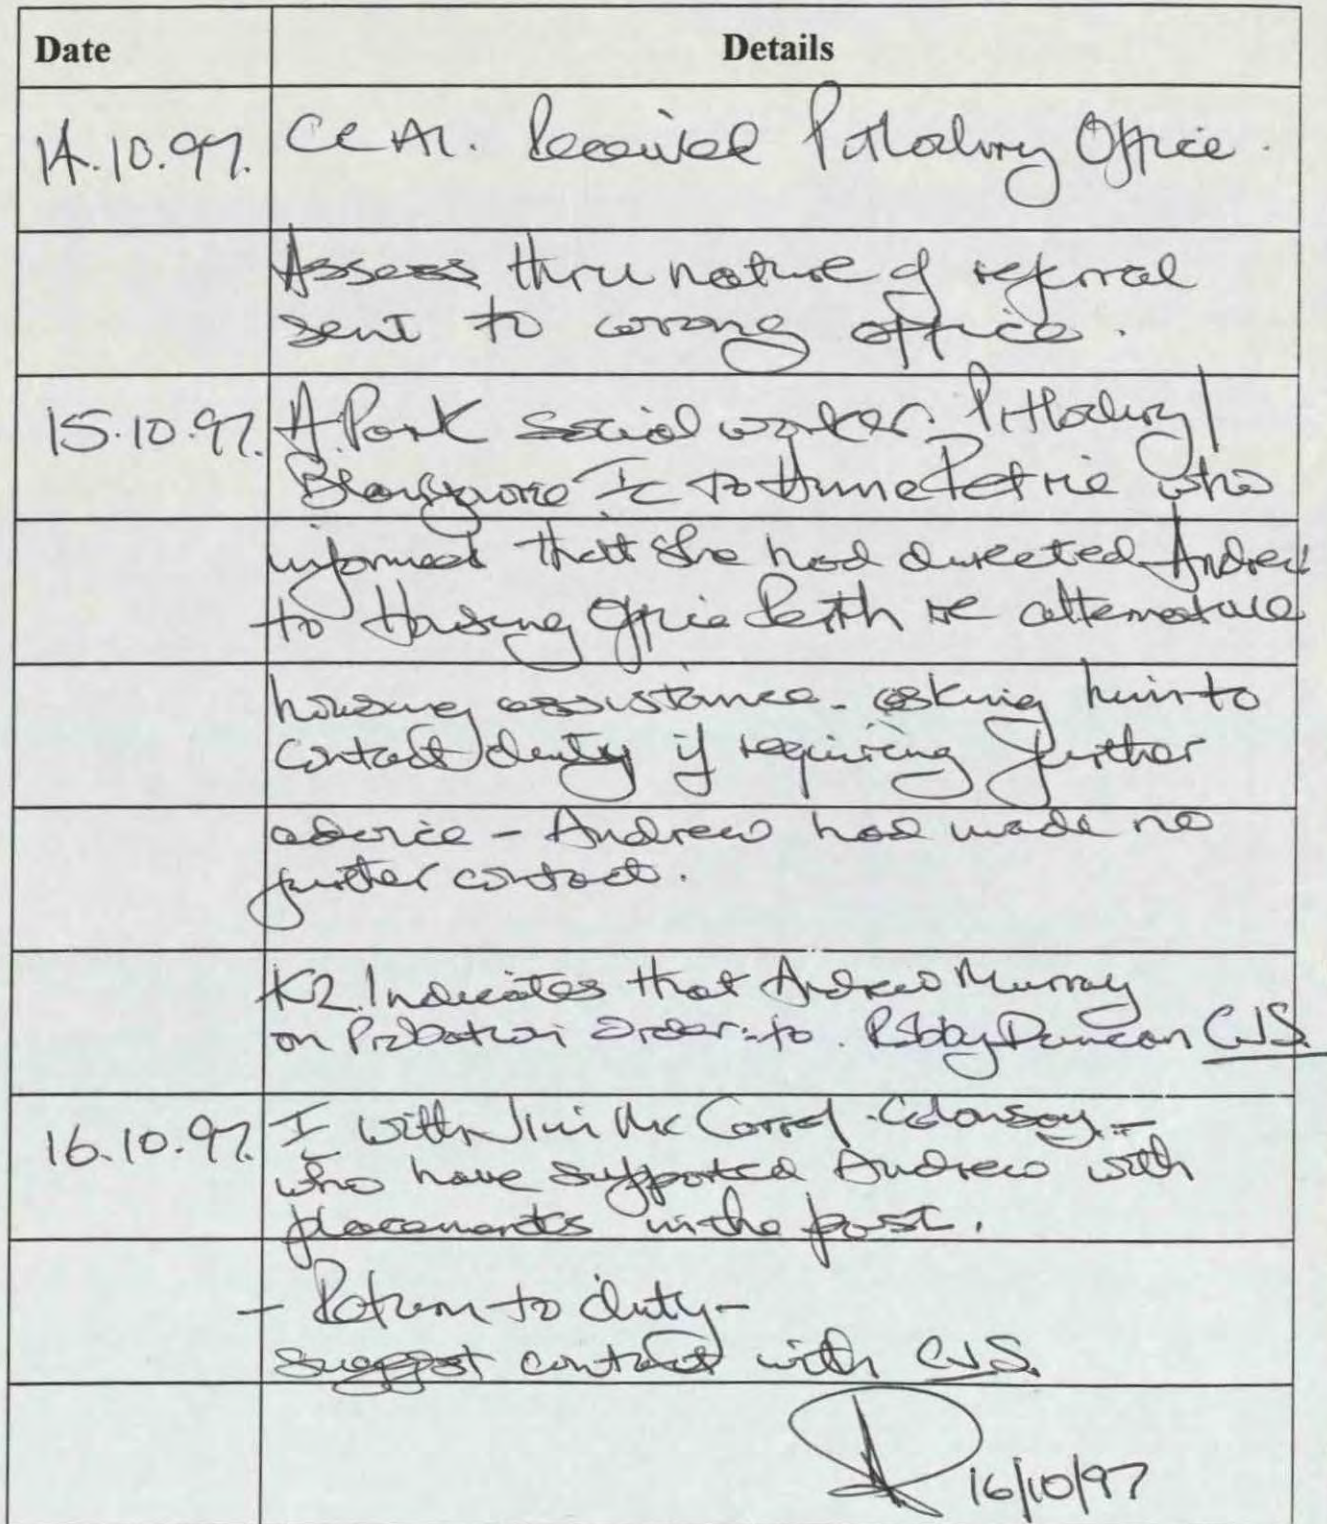 Date Details
14.10.97. CCA1. Received Pitlochry Office.
Assess thru nature of referral
sent to wrong office.
15.10.97. A. Park Social worker. Pitlochry/
Blairgowrie Tc to Anne Petrie who
informed that she had directed Andrew
to Housing Office Perth re alternative
housing assistance - asking him to
contact duty if requiring further
advice - Andrew had made no
further contact.
K2. Indicates that Andrew Murray
on Probation Order - to. Robby Duncan CJS.
16.10.97. I with Jim Mc Carrol - Colonsay -
who have supported Andrew with
placements in the past.
- Return to duty -
suggest contact with CJS.
16/10/97